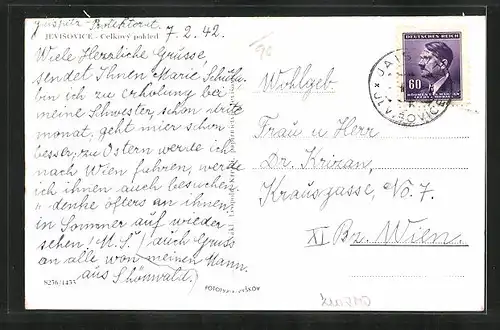 Protektorat 7. 2. 42.
JEVIŠOVICE - Celkový pohled
Viele Herrliche Grüsse,
sendet Ihnen Marie
bin ich zu erholung bei
meine Schwester, schon dritte
monat, geht mier schon
besser, zu Ostern werde ich
nach Wien fahren, werde
ich ihnen auch besuchen
denke öfters an ihnen,
in Sommer auf wieder
sehen! M. S.! auch Gruss
an alle von meinen Mann.
aus Schönwald.
S276/1433
90
DEUTSCHES REICH
60
BÖHMEN UND MÄHREN
Wohlgeb.
Frau u Herr
Dr. Krizan,
Krausgasse, No. 7.
XI Bz. Wien.